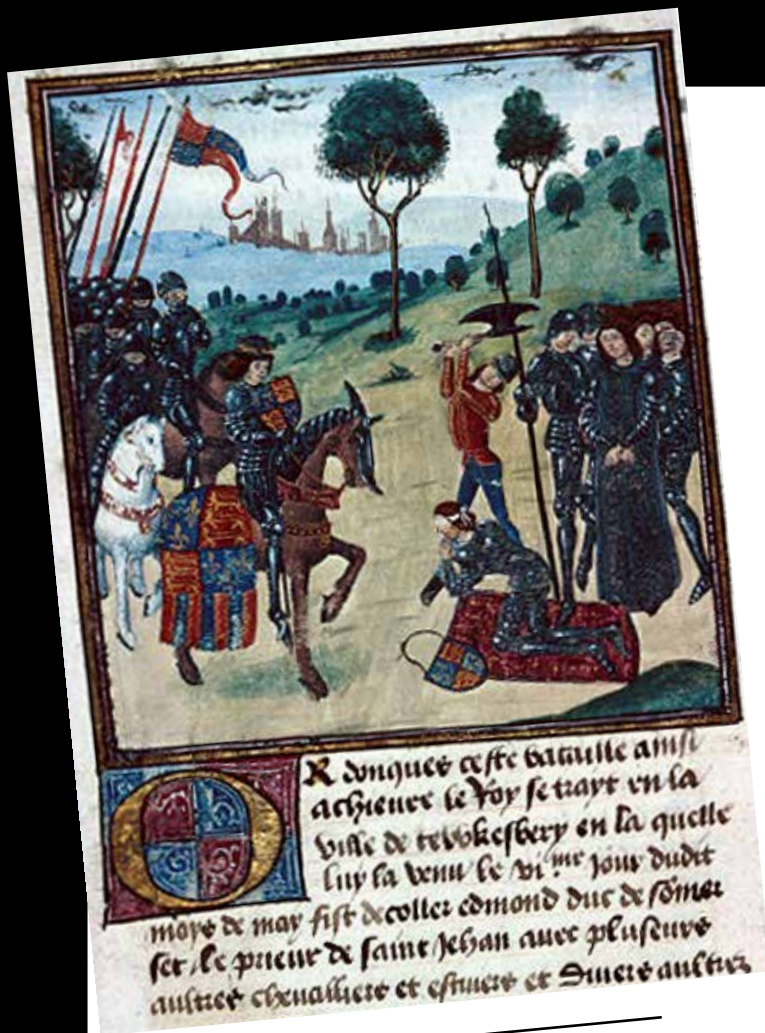 OR donques ceste bataille ainsi
achieuee le Roy se trayt en la
ville de tewkesbery en la quelle
luy la venu le vi.me jour dudit
moys de may fist decoller edmond duc de somer
set / le prieur de saint Jehan auec pluseurs
aultres cheualliers et escuiers et Diuers aultres